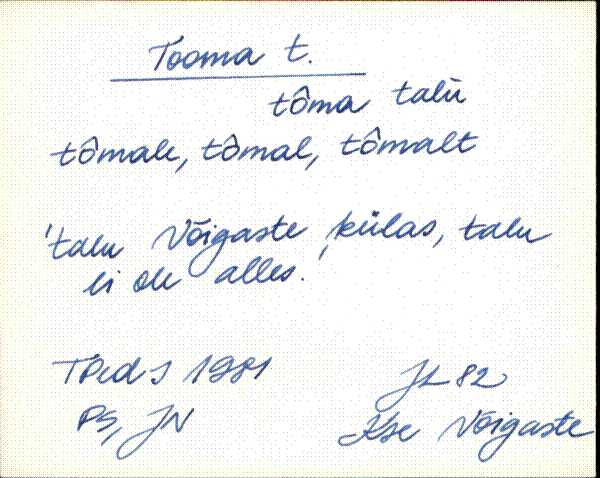 Tooma t.
tôma talu
tômale, tômal, tômalt
'talu Võigaste külas, talu
ei ole alles.'
TPedI 1981
PS, JN JL 82
Kse Võigaste